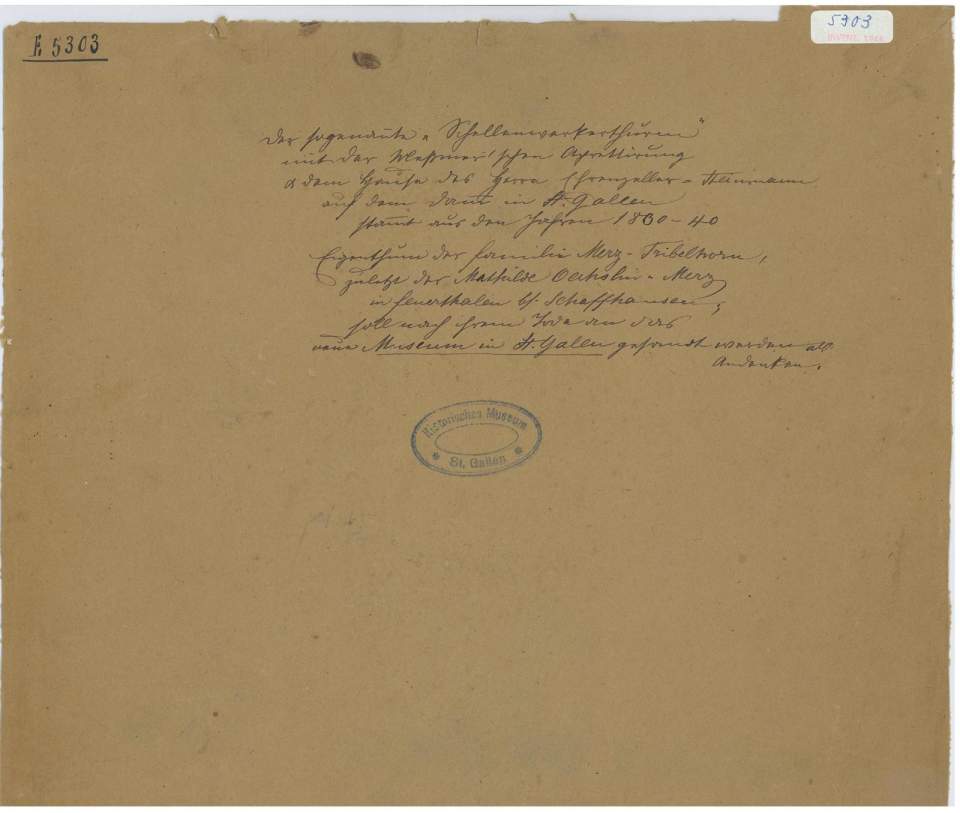 E 5303
5303
INVENT.
Der sogenannte „Schellenwerkerthurm"
mit der Messmer'schen Apprettirung
& dem Hause des Herrn Ehrenzeller-
auf dem Damm in St. Gallen
stammt aus den Jahren 1830-40
Eigenthum der Familie Merz-Tribelhorn,
zuletzt der Mathilde Oechslin-Merz
in Feuerthalen b/. Schaffhausen;
soll nach ihrem Tode an das
neue Museum in St. Gallen gesandt werden als
Andenken.
Historisches Museum
St. Gallen